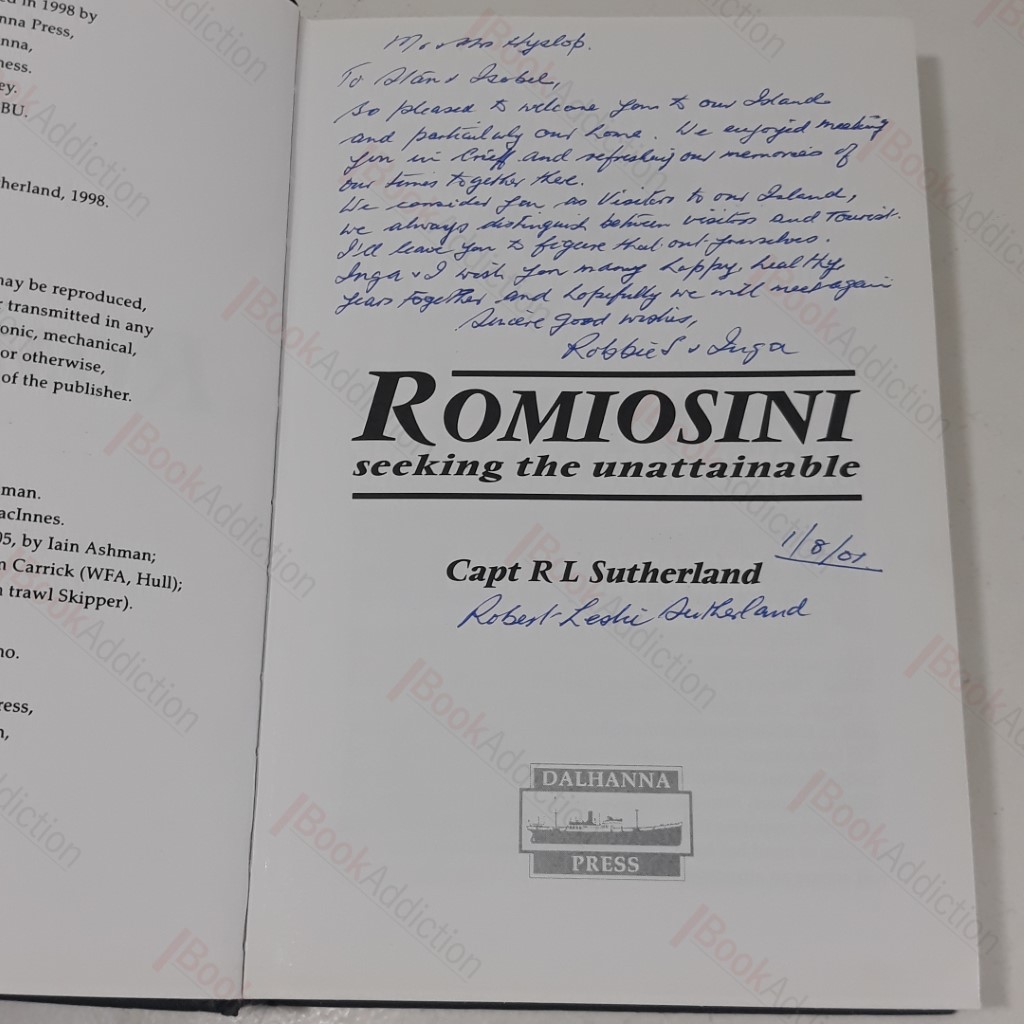 ed in 1998 by
nna Press,
nna,
ness.
ey.
BU.
herland, 1998.
may be reproduced,
r transmitted in any
onic, mechanical,
or otherwise,
of the publisher.
man.
acInnes.
05, by Iain Ashman;
n Carrick (WFA, Hull);
n trawl Skipper).
no.
ress,
n,
Mr & Mrs Hyslop.
To Alan & Isobel,
So pleased to welcome you to our Island
and particularly our home. We enjoyed meeting
you in Crieff and refreshing our memories of
our times together there.
We consider you as Visitors to our Island,
we always distinguish between visitors and Tourist.
I'll leave you to figure that out yourselves.
Inga & I wish you many happy, healthy
years together and hopefully we will meet again
Sincere good wishes,
Robbie S & Inga
ROMIOSINI
seeking the unattainable
1/8/01
Capt R L Sutherland
Robert Leslie Sutherland
DALHANNA
PRESS
BookAddiction